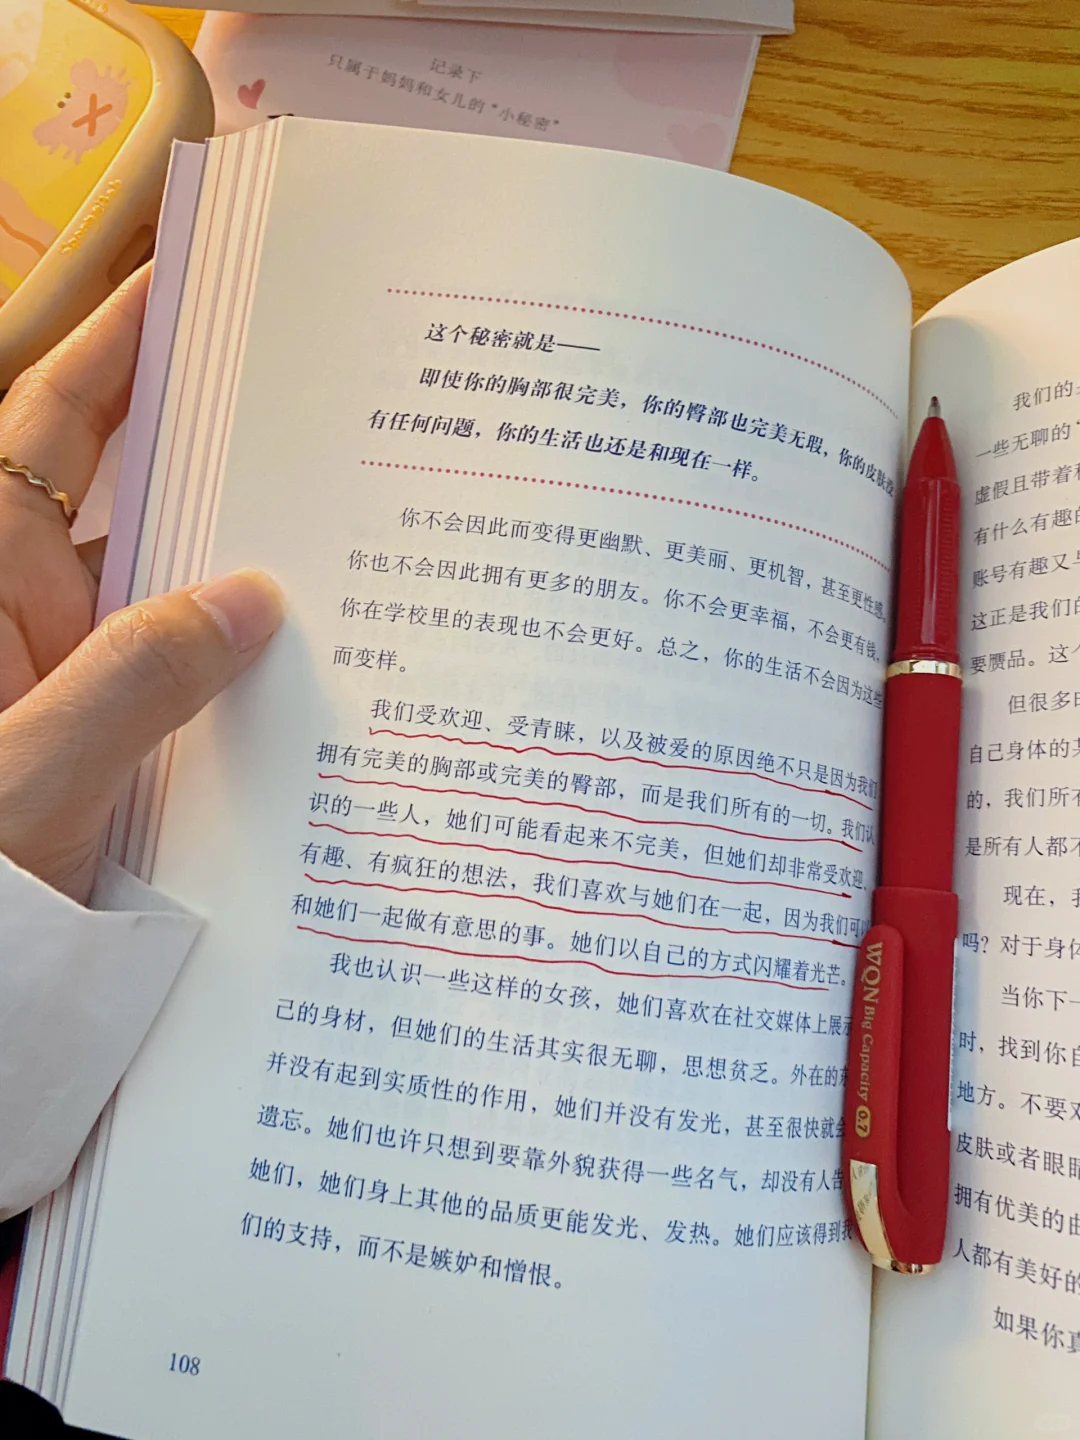 记录下
只属于妈妈和女儿的“小秘密”
这个秘密就是——
即使你的胸部很完美，你的臀部也完美无瑕，你的皮肤没
有任何问题，你的生活也还是和现在一样。
你不会因此而变得更幽默、更美丽、更机智，甚至更性感。
你也不会因此拥有更多的朋友。你不会更幸福，不会更有钱，
你在学校里的表现也不会更好。总之，你的生活不会因为这些
而变样。
我们受欢迎、受青睐，以及被爱的原因绝不只是因为我们
拥有完美的胸部或完美的臀部，而是我们所有的一切。我们认
识的一些人，她们可能看起来不完美，但她们却非常受欢迎、
有趣、有疯狂的想法，我们喜欢与她们在一起，因为我们可以
和她们一起做有意思的事。她们以自己的方式闪耀着光芒。
我也认识一些这样的女孩，她们喜欢在社交媒体上展示
己的身材，但她们的生活其实很无聊，思想贫乏。外在的东
并没有起到实质性的作用，她们并没有发光，甚至很快就会
遗忘。她们也许只想到要靠外貌获得一些名气，却没有人告
她们，她们身上其他的品质更能发光、发热。她们应该得到我
们的支持，而不是嫉妒和憎恨。
108
我们的
一些无聊的“
虚假且带着
有什么有趣的
账号有趣又
这正是我们的
要赝品。这个
但很多
自己身体的
的，我们所有
是所有人都不
现在，我
吗？对于身体
当你下一
时，找到你自
地方。不要
皮肤或者眼睛
拥有优美的曲
人都有美好的
如果你真
WQN Big Capacity 0.7